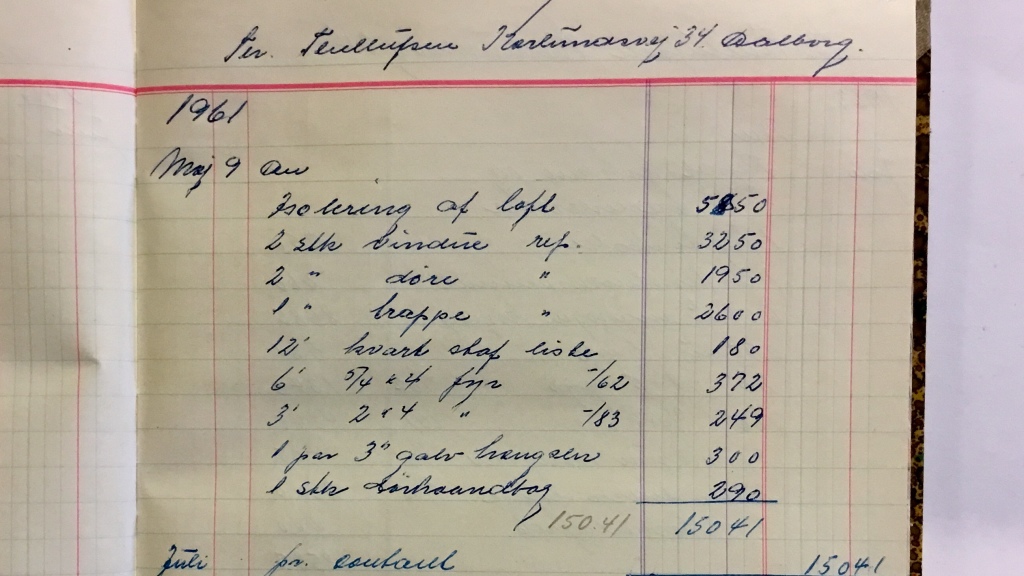 34. Aalborg.
1961
Maj 9 An
Isolering af loft 5850
2 stk vindue rep. 3250
2 " døre " 1950
1 " trappe " 2600
12' kvart staf liste 180
6' 5/4 × 4 fyr -/62 372
3' 2 × 4 " -/83 249
1 par 3" galv hængsler 300
1 stk dørhaandtag 290
150.41 15041
Juli pr. contant 15041